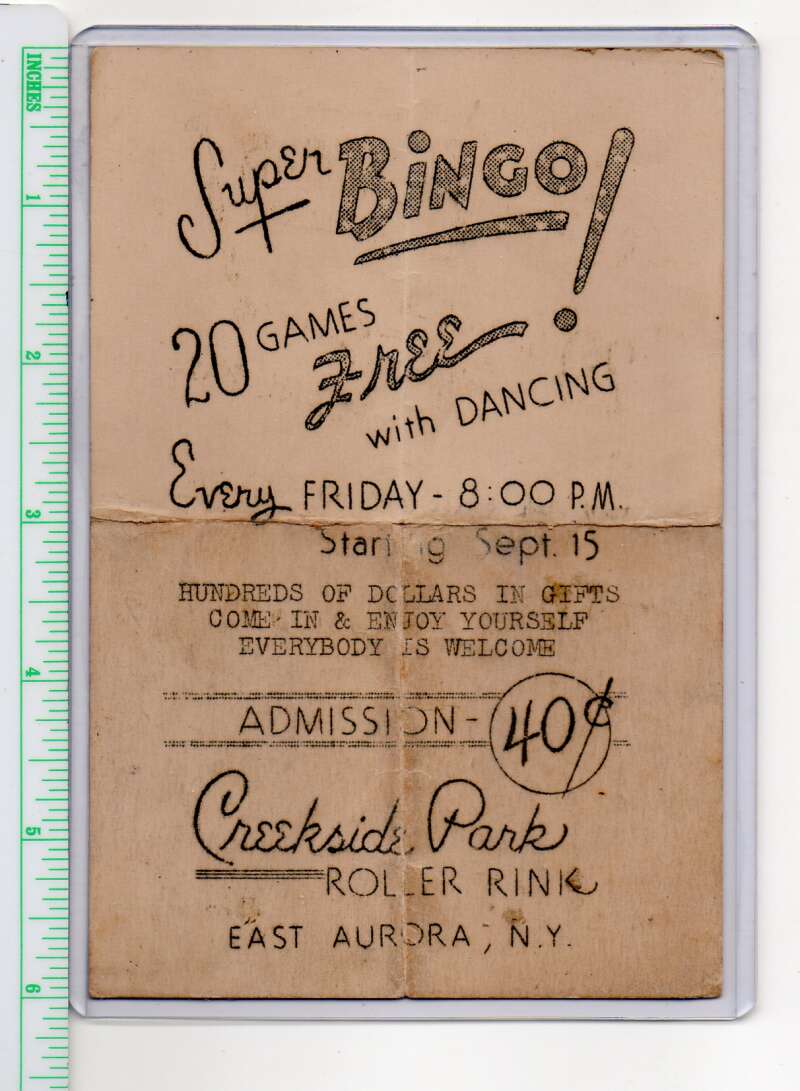 INCHES
1
2
3
4
5
6
Super BiNGO!
20 GAMES
FREE
with DANCING
Every FRIDAY - 8:00 P.M.
Starting Sept. 15
HUNDREDS OF DOLLARS IN GIFTS
COME IN & ENJOY YOURSELF
EVERYBODY IS WELCOME
ADMISSION - 40¢
Creekside Park
ROLLER RINK
EAST AURORA, N.Y.